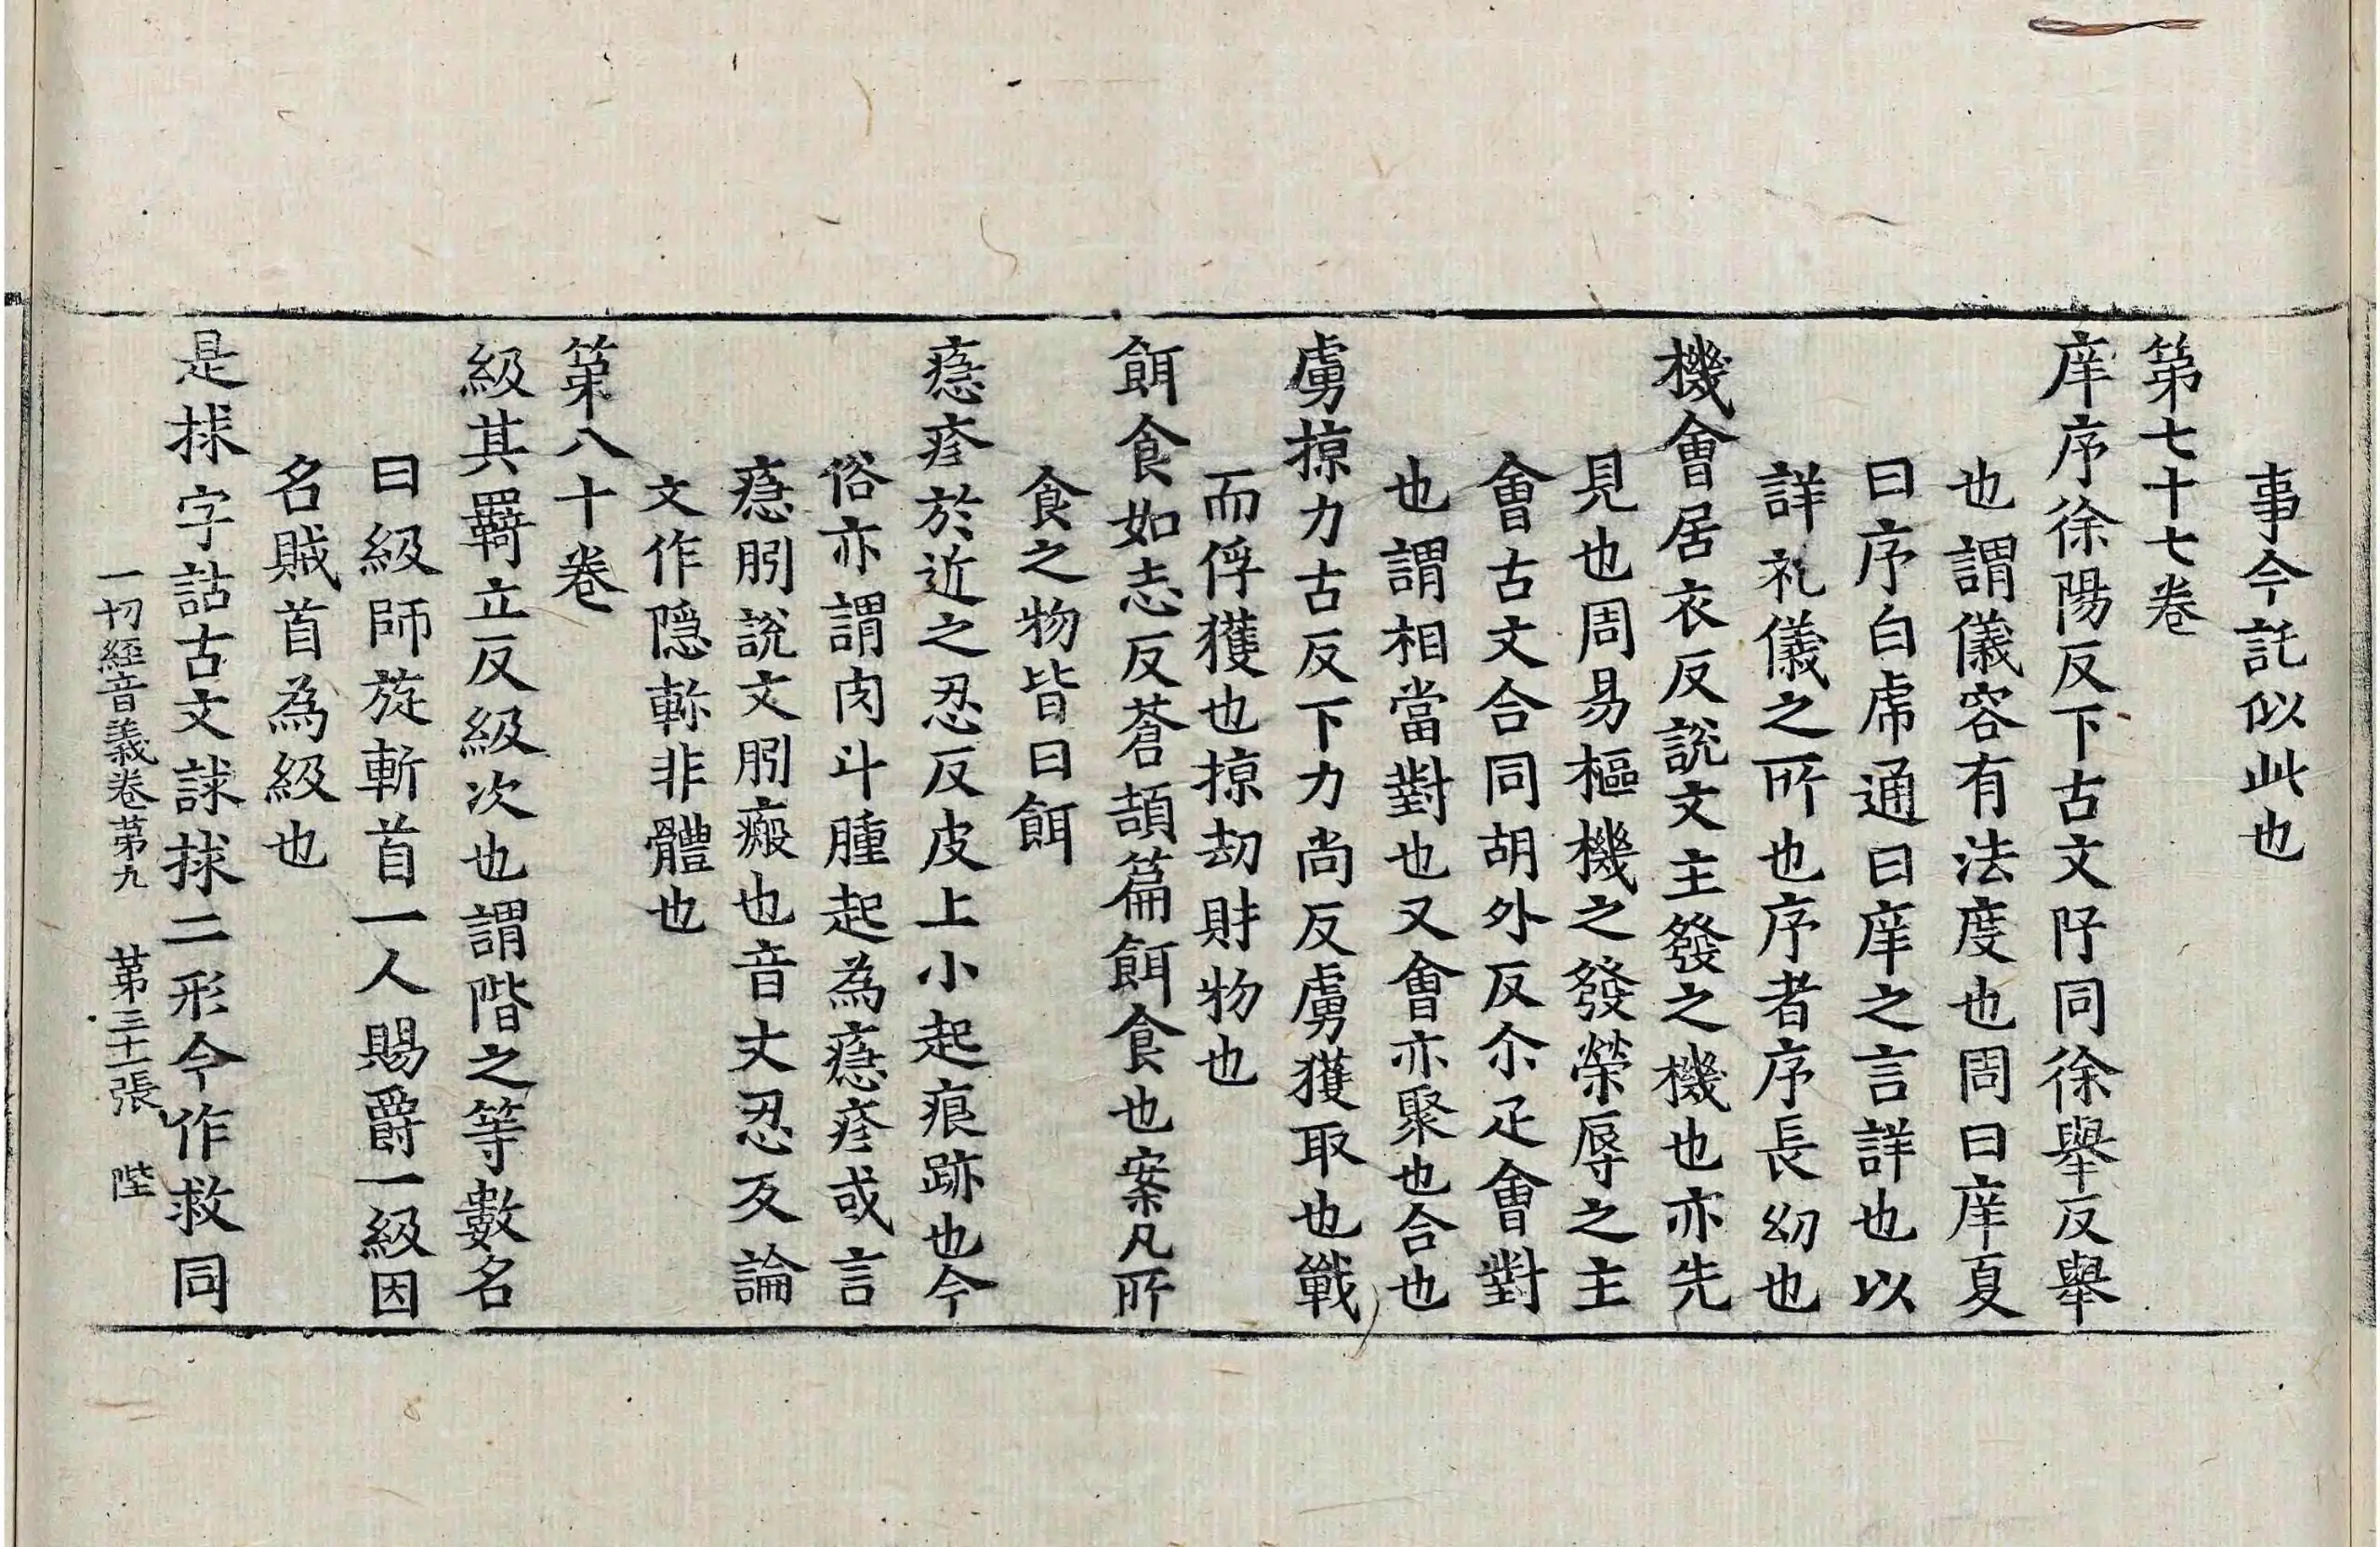 事今託似此也
第七十七卷
庠序徐陽反下古文阡同徐舉反舉
也謂儀容有法度也周曰庠夏
曰序白乕通曰庠之言詳也以
詳礼儀之所也序者序長幼也
機會居衣反說文主發之機也亦先
見也周易樞機之發榮辱之主
會古文合同胡外反尒疋會對
也謂相當對也又會亦聚也合也
虜掠力古反下力尚反虜獲取也戰
而俘獲也掠劫財物也
餌食如志反蒼頡篇餌食也案凡所
食之物皆曰餌
㾯疹於近之忍反皮上小起痕跡也今
俗亦謂肉斗腫起為㾯疹或言
㾯胗說文胗瘢也音丈忍反論
文作隱軫非體也
第八十卷
級其羇立反級次也謂階之等數名
曰級師旋斬首一人賜爵一級因
名賊首為級也
是捄字詁古文䛔捄二形今作救同
一切經音義卷第九 第三十二張 陛